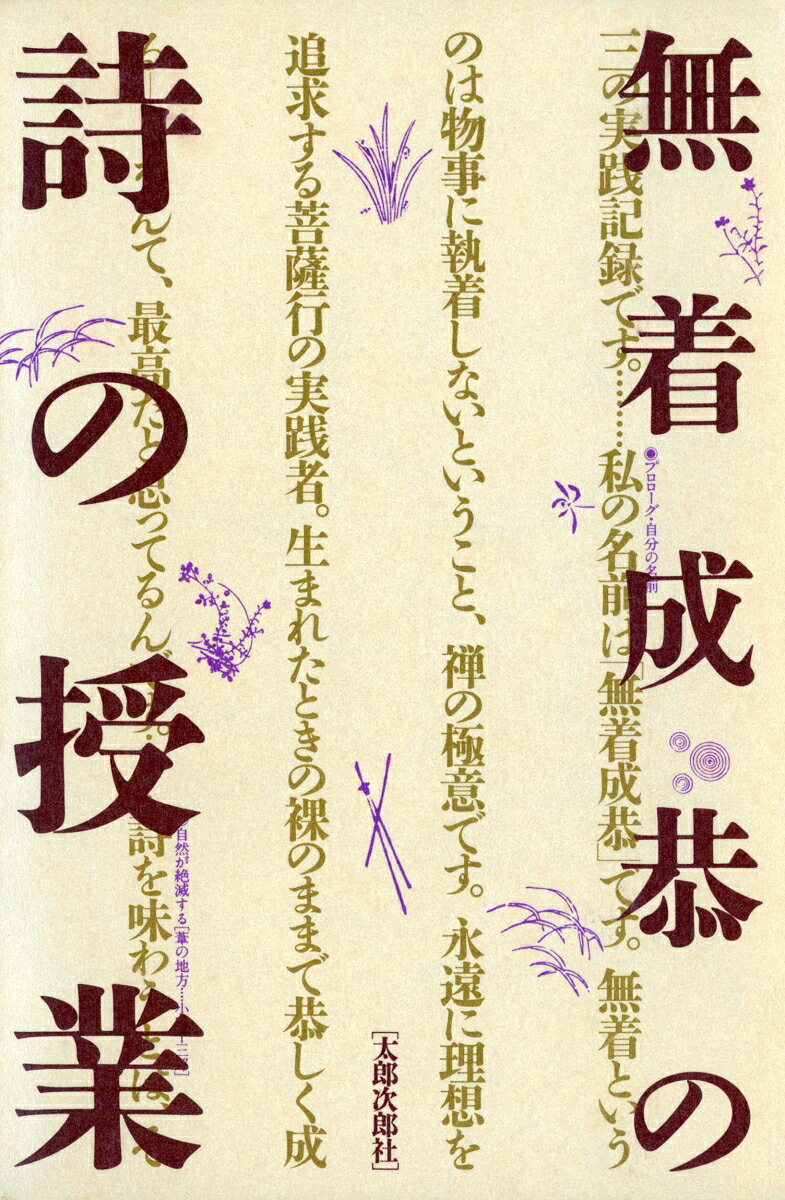 無着成恭の
詩の授業
三の実践記録です。………私の名前は「無着成恭」です。無着という
◉プロローグ・自分の名前
のは物事に執着しないということ、禅の極意です。永遠に理想を
追求する菩薩行の実践者。生まれたときの裸のままで恭しく成
んて、最高だと思ってるんです。
詩を味わ
自然が絶滅する［葦の地方……小
［太郎次郎社］